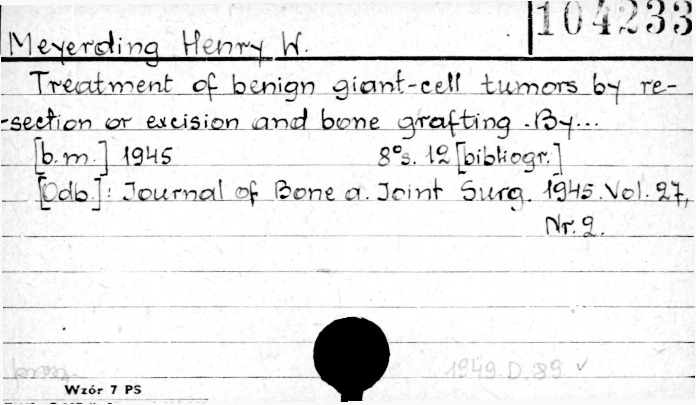 104233
Meyerding Henry W.
Treatment of benign giant-cell tumors by re-
-section or excision and bone grafting. By...
[b.m.] 1945 8°s. 12 [bibliogr.]
[Odb.]: Journal of Bone a. Joint Surg. 1945. Vol. 27,
Nr. 2.
1949.D.89 ✓
Wzór 7 PS